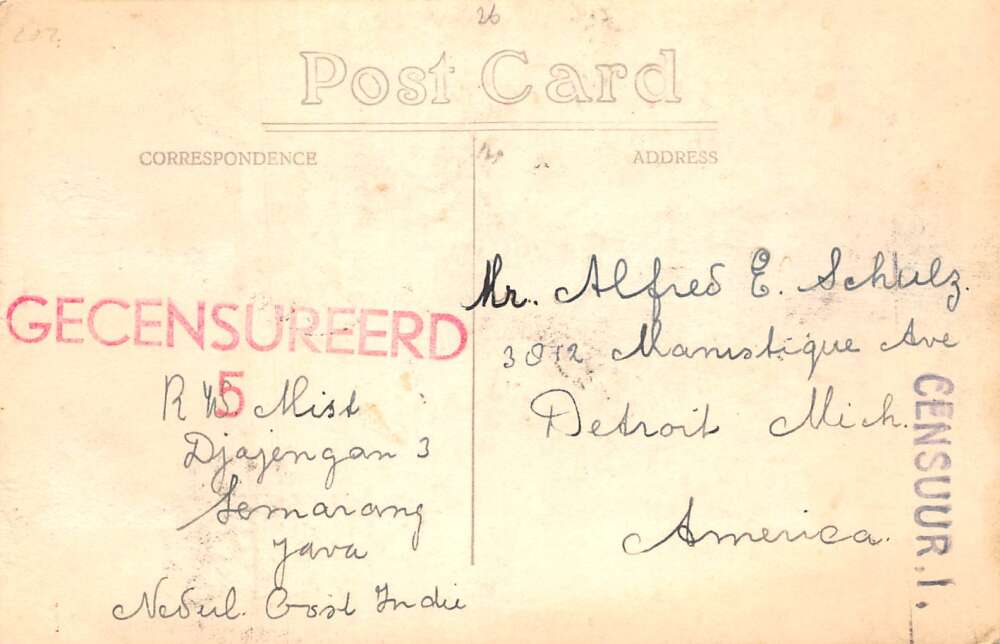 26
Post Card
CORRESPONDENCE
ADDRESS
GECENSUREERD
5
R W Mist
Djajengan 3
Semarang
Java
Nederl. Oost Indie
Mr. Alfred E. Schulz.
3812 Manistique Ave
Detroit Mich.
America.
CENSUUR.I.